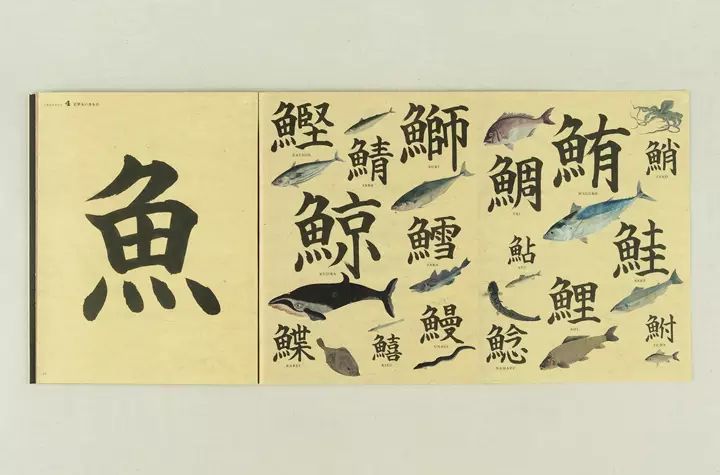 4
魚
鰹
KATSUO
鯖
SABA
鰤
BURI
鯨
KUJIRA
鱈
TARA
鰈
KAREI
鱚
KISU
鰻
UNAGI
鯛
TAI
鮪
MAGURO
鮹
TAKO
鮎
AYU
鮭
SAKE
鯰
NAMAZU
鯉
KOI
鮒
FUNA